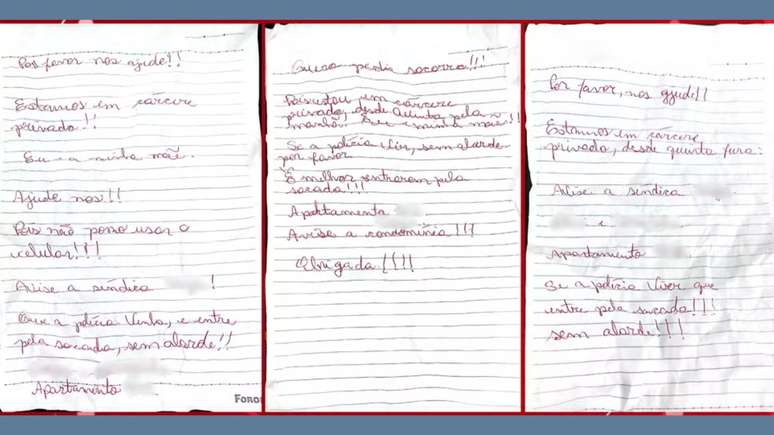 Por favor nos ajude!!
Estamos em cárcere
privado!!
Eu e a minha mãe.
Ajude nos!!
Pois não posso usar o
celular!!!
Avise a síndica !
Que a polícia venha, e entre
pela sacada, sem alarde!!
Apartamento
FORON
pedir socorro!!!
Pois estou em cárcere
privado, desde quinta pela
manhã. Eu e minha mãe!!
Se a polícia vir, sem alarde
por favor
É melhor entrarem pela
sacada!!!
Apartamento
Avise a condomínia!!!
Obrigada!!!!
Por favor, nos ajude!!
Estamos em cárcere
privado, desde quinta feira:
Avise a síndica
e
Apartamento
Se a polícia vier que
entre pela sacada!!!
sem alarde!!!